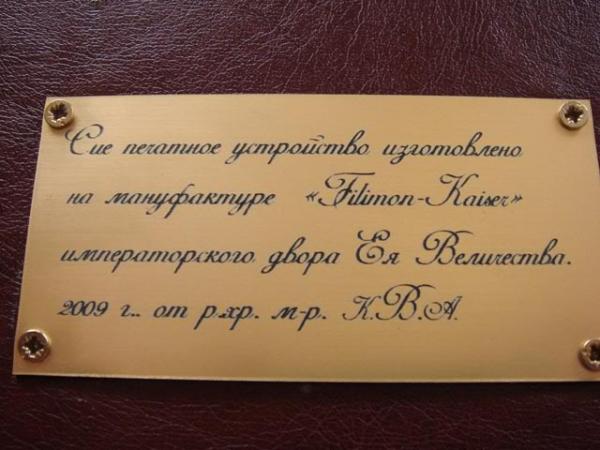 Сие печатное устройство изготовлено
на мануфактуре «Filimon-Kaiser»
императорского двора Ея Величества.
2009 г.. от р.хр. м-р. К.В.А.